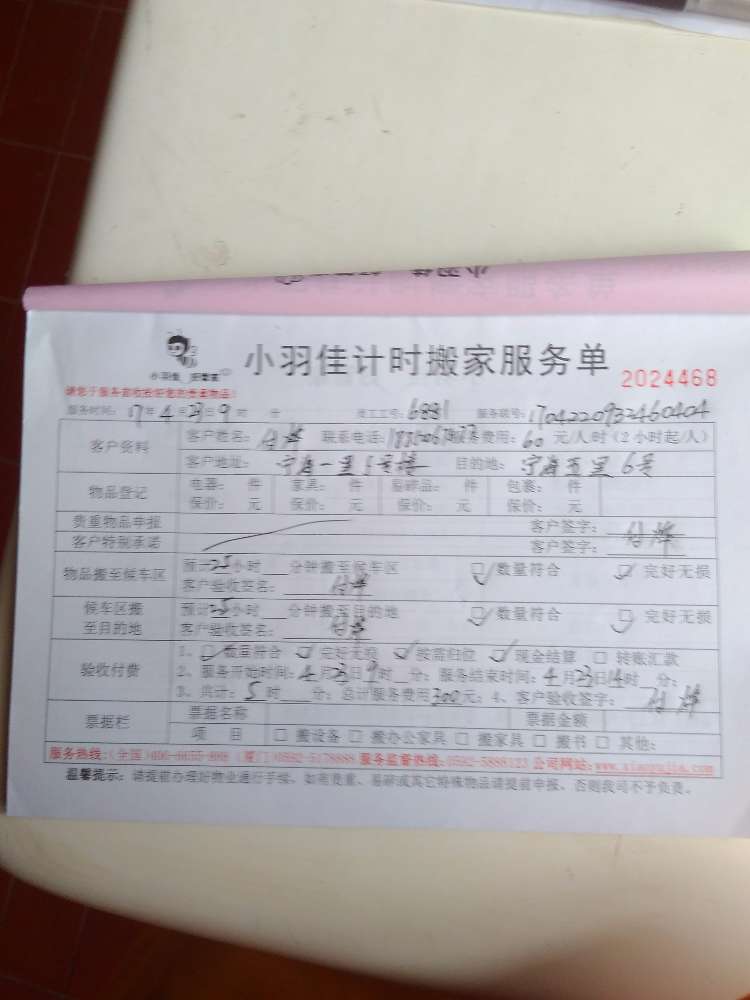 小羽佳计时搬家服务单
2024468
小羽佳 好管家
请您于服务前收捡好您的贵重物品!
服务时间:17年4月23日9时 分 员工工号:6881 服务账号:1704220932460404
客户资料 客户姓名: 联系电话: 服务费用:60元/人时(2小时起/人)
客户地址:宁海一里5号楼 目的地:宁海五里6号
物品登记 电器: 件 家具: 件 易碎品: 件 包裹: 件
保价: 元 保价: 元 保价: 元 保价: 元
贵重物品申报 客户签字:
客户特别承诺 客户签字:
物品搬至候车区 预计2.5小时 分钟搬至候车区 数量符合 完好无损
客户验收签名:
候车区搬至目的地 预计2.5小时 分钟搬至目的地 数量符合 完好无损
客户验收签名:
验收付费 1、数量符合 完好无损 按需归位 现金结算 转账汇款
2、服务开始时间:4月23日9时 分;服务结束时间:4月23日14时 分;
3、共计:5时 分;总计服务费用300元;4、客户验收签字:
票据栏 票据名称 票据金额
项目 搬设备 搬办公家具 搬家具 搬书 其他:
服务热线:(全国)400-6655-888 (厦门)0592-5178888 服务监督热线:0592-5888123 公司网站:www.xiaoyujia.com
温馨提示:请提前办理好物业通行手续,如有贵重、易碎或其它特殊物品请提前申报,否则我司不予负责。